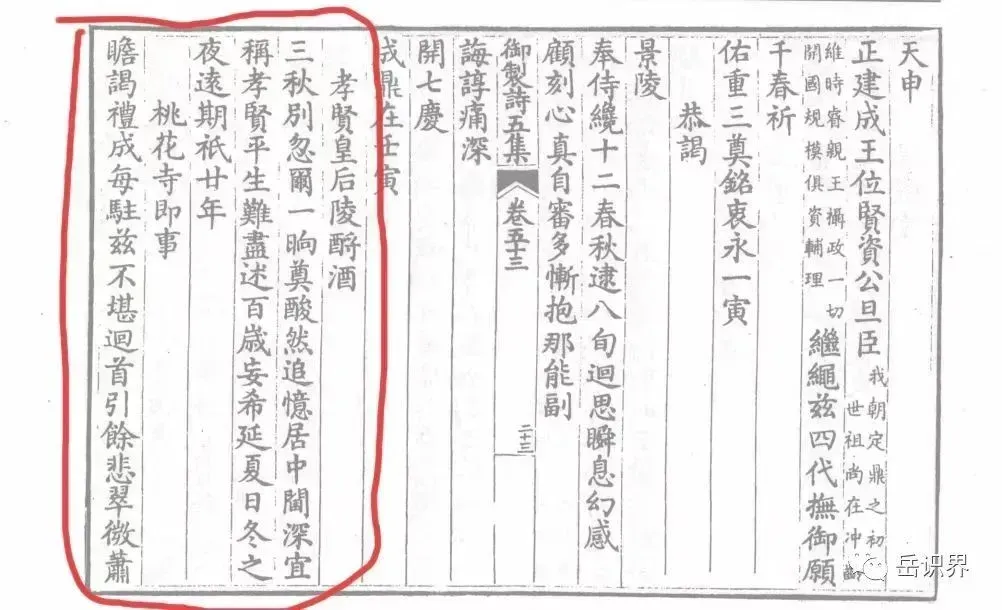 天申
正建成王位賢資公旦臣
我朝定鼎之初
世祖尚在冲
維時睿親王攝政一切
開國規模俱資輔理
繼繩兹四代撫御願
千春祈
佑重三奠銘衷永一寅
恭謁
景陵
奉侍纔十二春秋逮八旬迴思瞬息幻感
顧刻心真自審多慚抱那能副
御製詩五集 卷五十三 二十三
誨諄痛深
開七慶
成鼎在壬寅
孝賢皇后陵酹酒
三秋別忽爾一晌奠酸然追憶居中閫深宜
稱孝賢平生難盡述百歲妄希延夏日冬之
夜遠期祇廿年
桃花寺即事
瞻謁禮成每駐兹不堪迴首引餘悲翠微蕭
岳识界